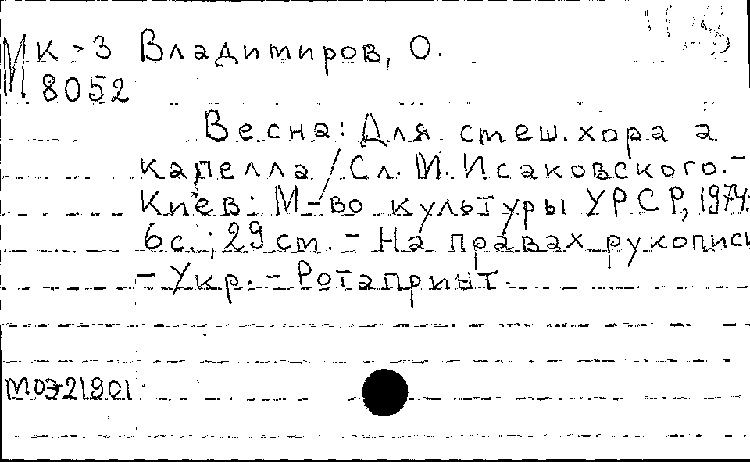 МК-3 Владимиров, О.
8052
Весна: Для смеш. хора а
капелла / Сл. М. Исаковского.-
Киев: М-во культуры УРСР, 1974.
6с.; 29см. - На правах рукописи
- Укр. - Ротапринт.
МОЭ21801